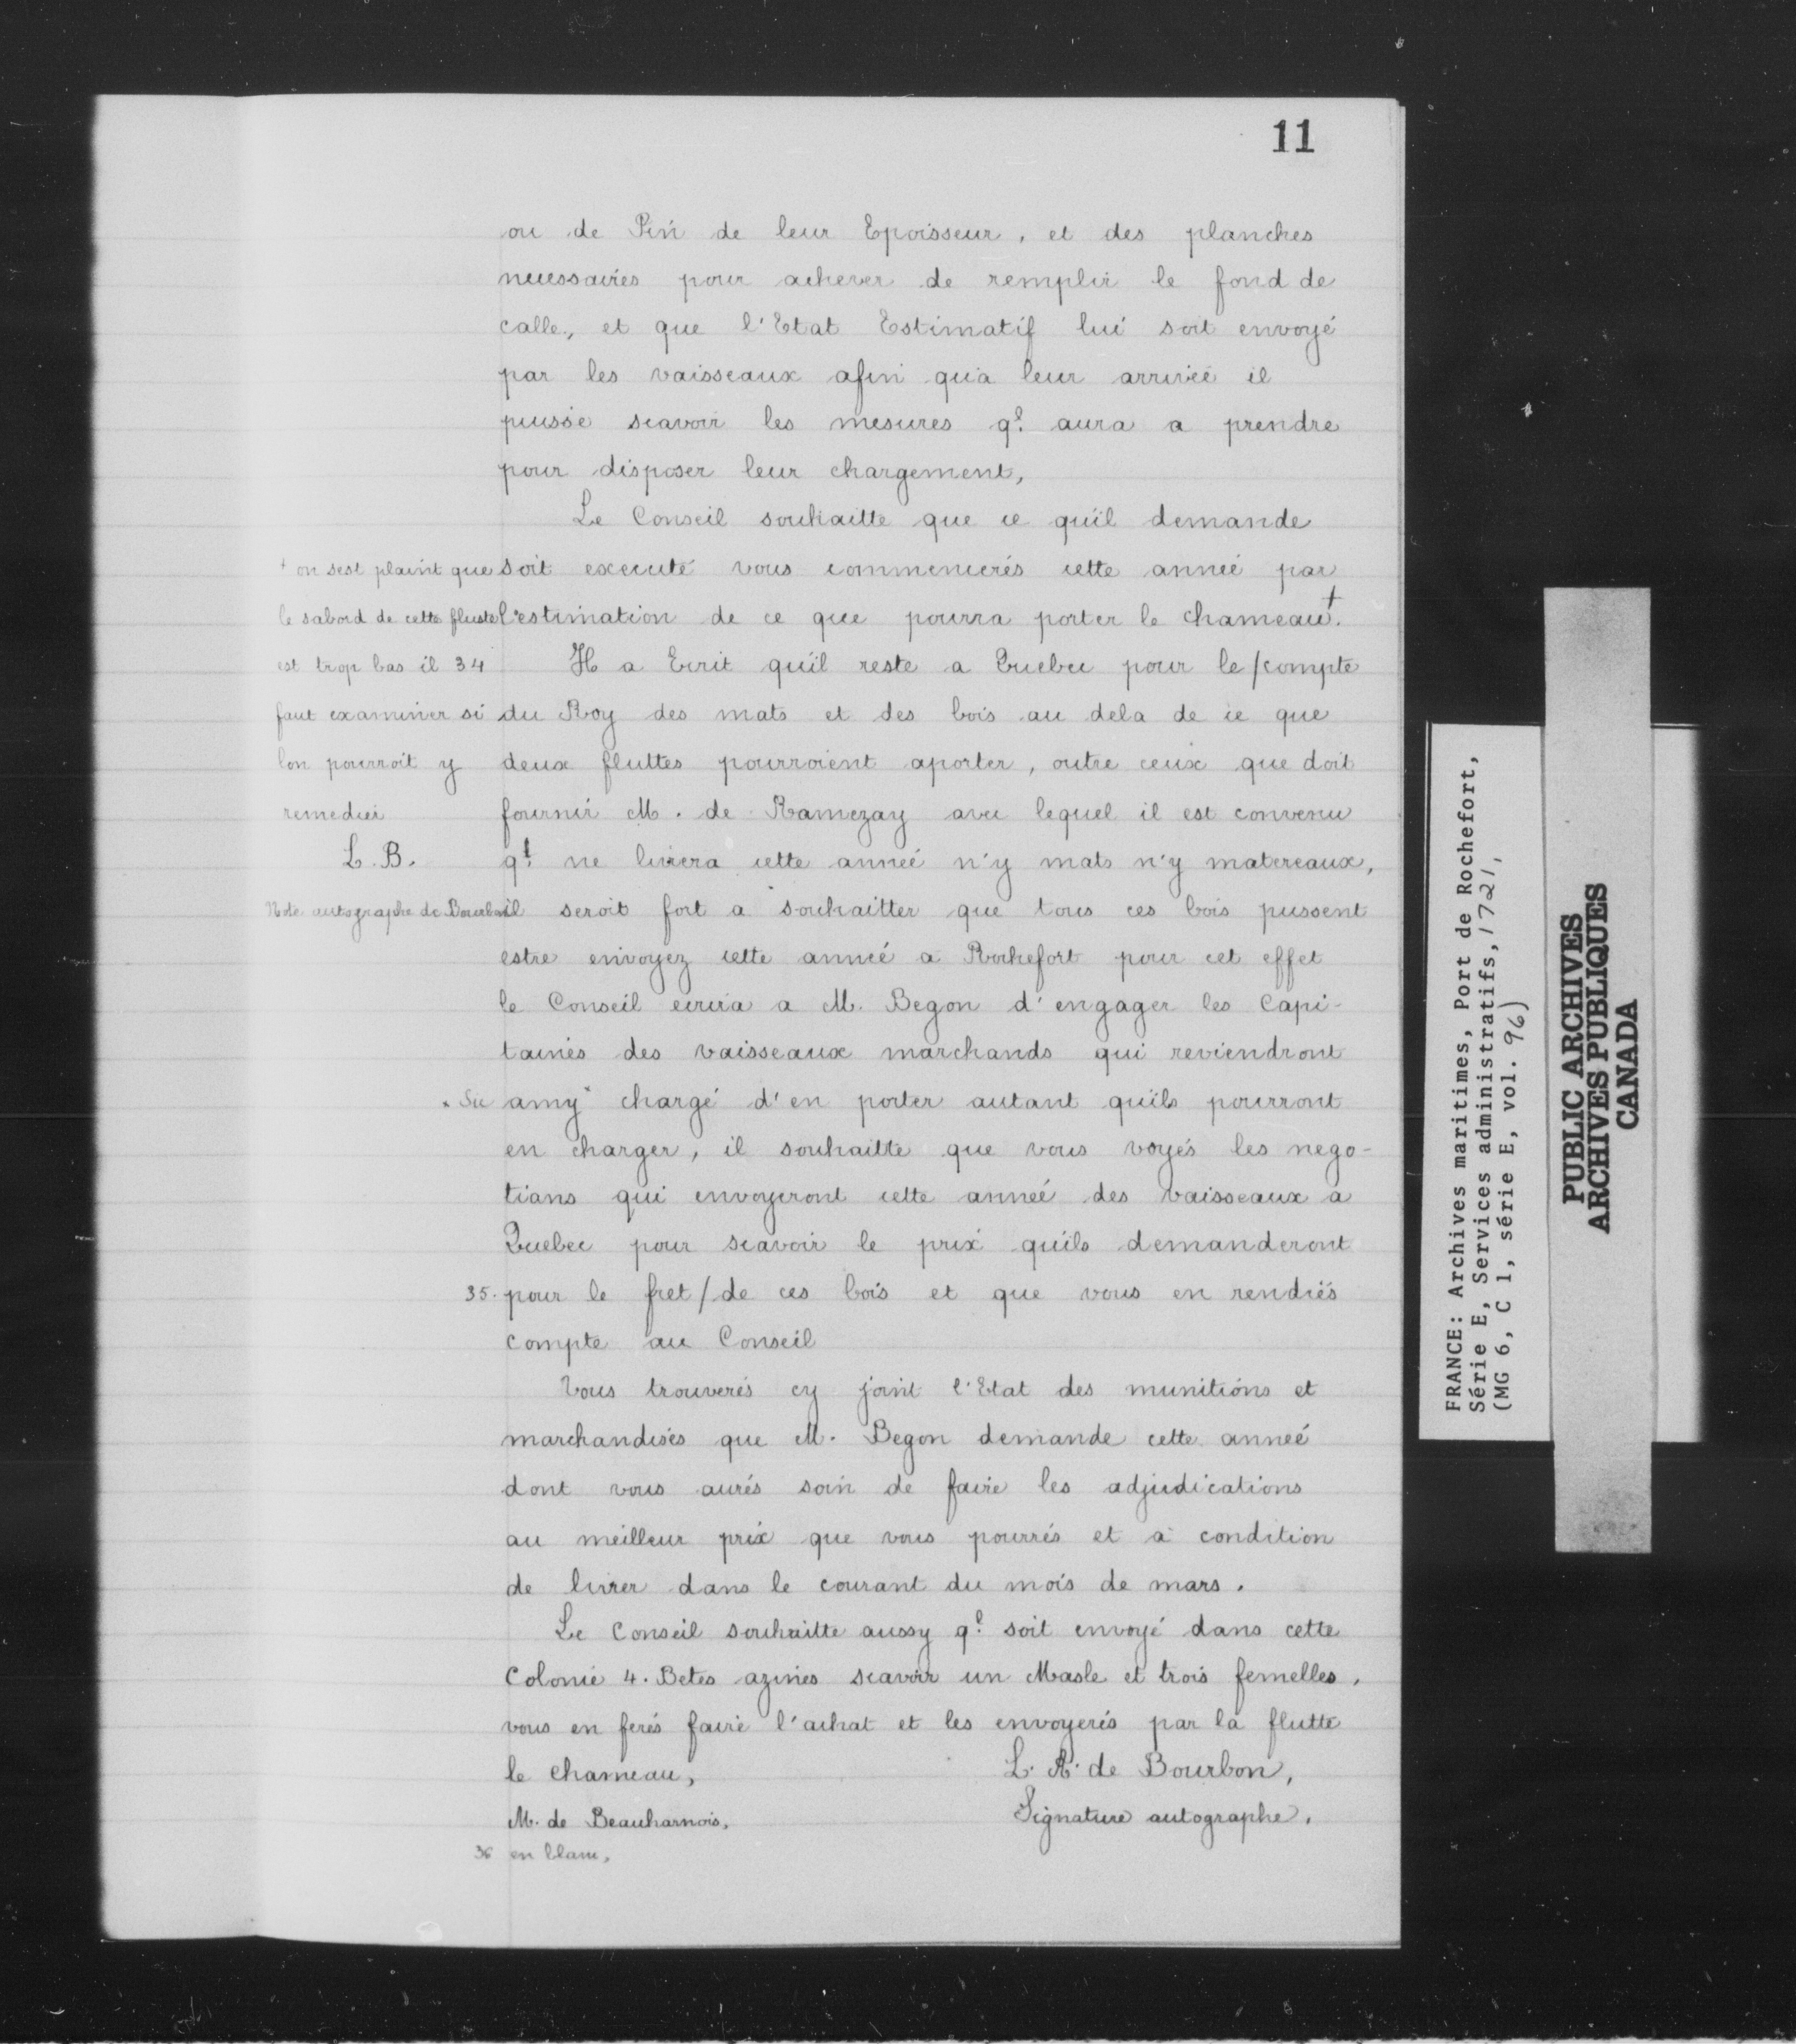 11
ou de Pin de leur Epoisseur, et des planches
necessaires pour achever de remplir le fond de
calle, et que l'Etat Estimatif lui soit envoyé
par les vaisseaux afin qu'a leur arrivée il
puisse scavoir les mesures ql. aura a prendre
pour disposer leur chargement,
Le Conseil souhaitte que ce qu'il demande
soit executé vous commencerés cette année par
l'estimation de ce que pourra porter le chameau.+
Il a Ecrit qu'il reste a Quebec pour le/compte
du Roy des mats et des bois au dela de ce que
deux fluttes pourroient aporter, outre ceux que doit
fournir M. de Ramezay avec lequel il est convenu
ql. ne livrera cette année n'y mats n'y matereaux,
il seroit fort a souhaitter que tous ces bois pussent
estre envoyez cette année a Rochefort pour cet effet
le Conseil ecrira a M. Begon d'engager les Capi-
taines des vaisseaux marchands qui reviendront
amy* chargé d'en porter autant qu'ils pourront
en charger, il souhaitte que vous voyés les nego-
tians qui envoyeront cette année des vaisseaux a
Quebec pour scavoir le prix qu'ils demanderont
35. pour le fret/de ces bois et que vous en rendiés
compte au Conseil
Vous trouverés cy joint l'Etat des munitions et
marchandises que M. Begon demande cette année
dont vous aurés soin de faire les adjudications
au meilleur prix que vous pourrés et a condition
de livrer dans le courant du mois de mars.
Le Conseil souhaitte aussy ql. soit envoyé dans cette
Colonie 4. Betes azines scavoir un Masle et trois femelles,
vous en ferés faire l'achat et les envoyerés par la flutte
le chameau,
L. A. de Bourbon,
M. de Beauharnois,
Signature autographe.
36 en blanc,
+ on sest plaint que
le sabord de cette fluste
est trop bas il 34
faut examiner si
lon pourroit y
remedier
L. B.
Note autographe de Bourbon
* Sic
FRANCE: Archives maritimes, Port de Rochefort,
Série E, Services administratifs, 1721,
(MG 6, C 1, série E, vol. 96)
PUBLIC ARCHIVES
ARCHIVES PUBLIQUES
CANADA